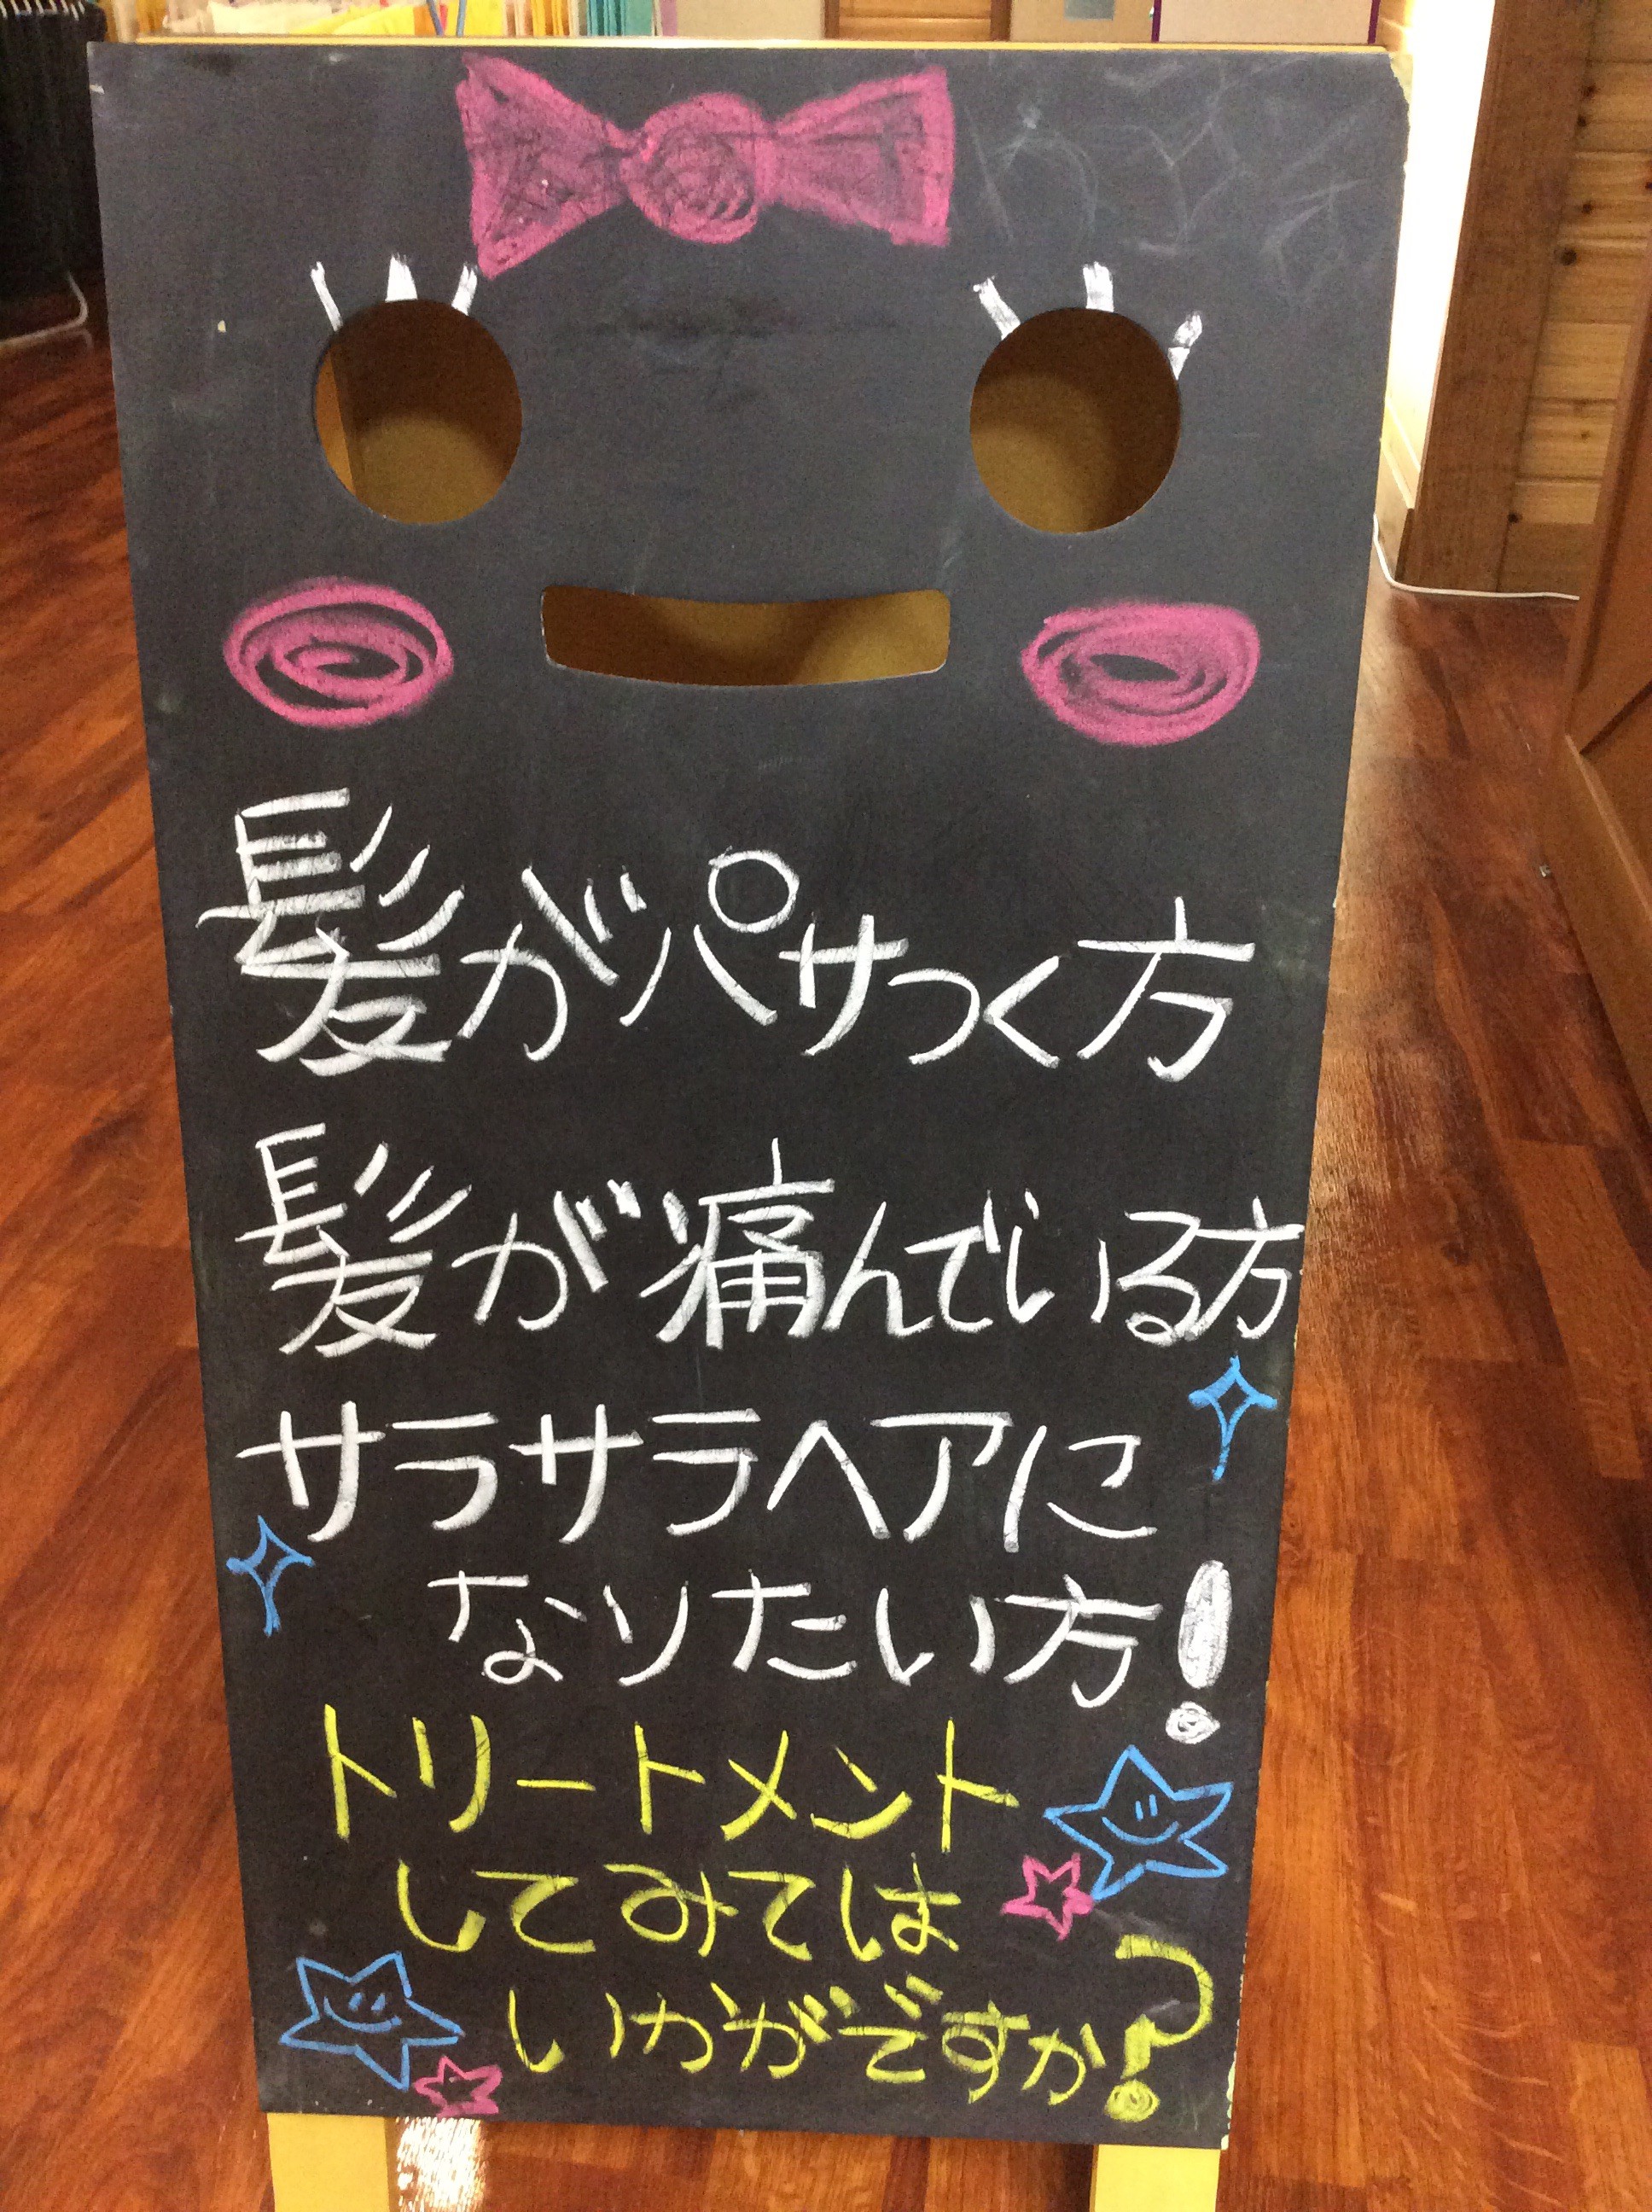 髪がパサつく方
髪が痛んでいる方
サラサラヘアに
なりたい方!
トリートメント
してみては
いかがですか?